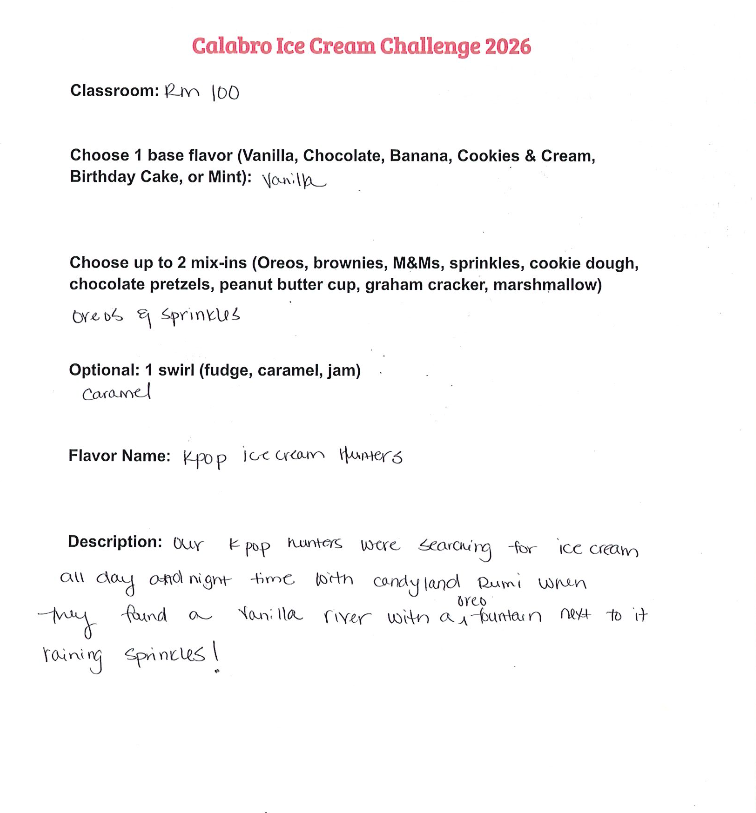 Calabro Ice Cream Challenge 2026
Classroom: Rm 100
Choose 1 base flavor (Vanilla, Chocolate, Banana, Cookies & Cream,
Birthday Cake, or Mint): Vanilla
Choose up to 2 mix-ins (Oreos, brownies, M&Ms, sprinkles, cookie dough,
chocolate pretzels, peanut butter cup, graham cracker, marshmallow)
oreos & sprinkles
Optional: 1 swirl (fudge, caramel, jam)
caramel
Flavor Name: Kpop ice cream Hunters
Description: Our Kpop hunters were searching for ice cream
all day and night time with candyland Rumi when
they found a vanilla river with a oreo fountain next to it
raining sprinkles!